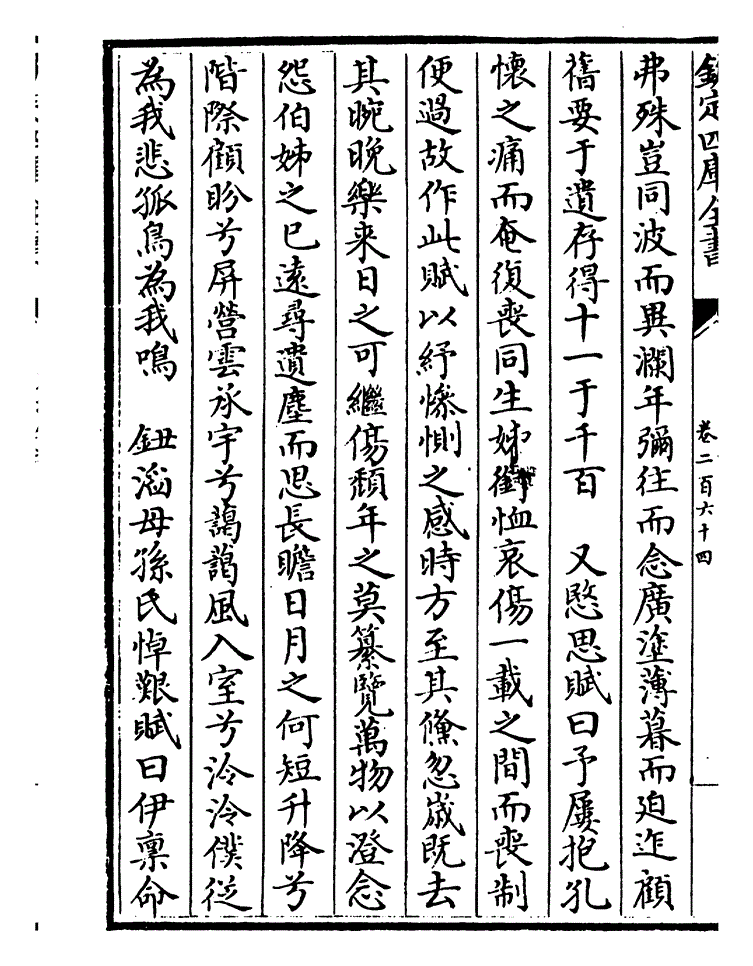 欽定四庫全書
卷二百六十四
弗殊豈同波而異瀾年彌往而念廣塗薄暮而迫迮顧
舊要于遺存得十一于千百　又愍思賦曰予屢抱孔
懐之痛而奄復喪同生姊銜恤哀傷一載之間而喪制
便過故作此賦以紓慘惻之感時方至其儵忽歳既去
其晼晚樂来日之可繼傷頽年之莫纂覽萬物以澄念
怨伯姊之已逺尋遺塵而思長瞻日月之何短升降兮
階際顧盼兮屏營雲承宇兮藹藹風入室兮泠泠僕從
為我悲孤鳥為我鳴　鈕滔母孫氏悼艱賦曰伊禀命